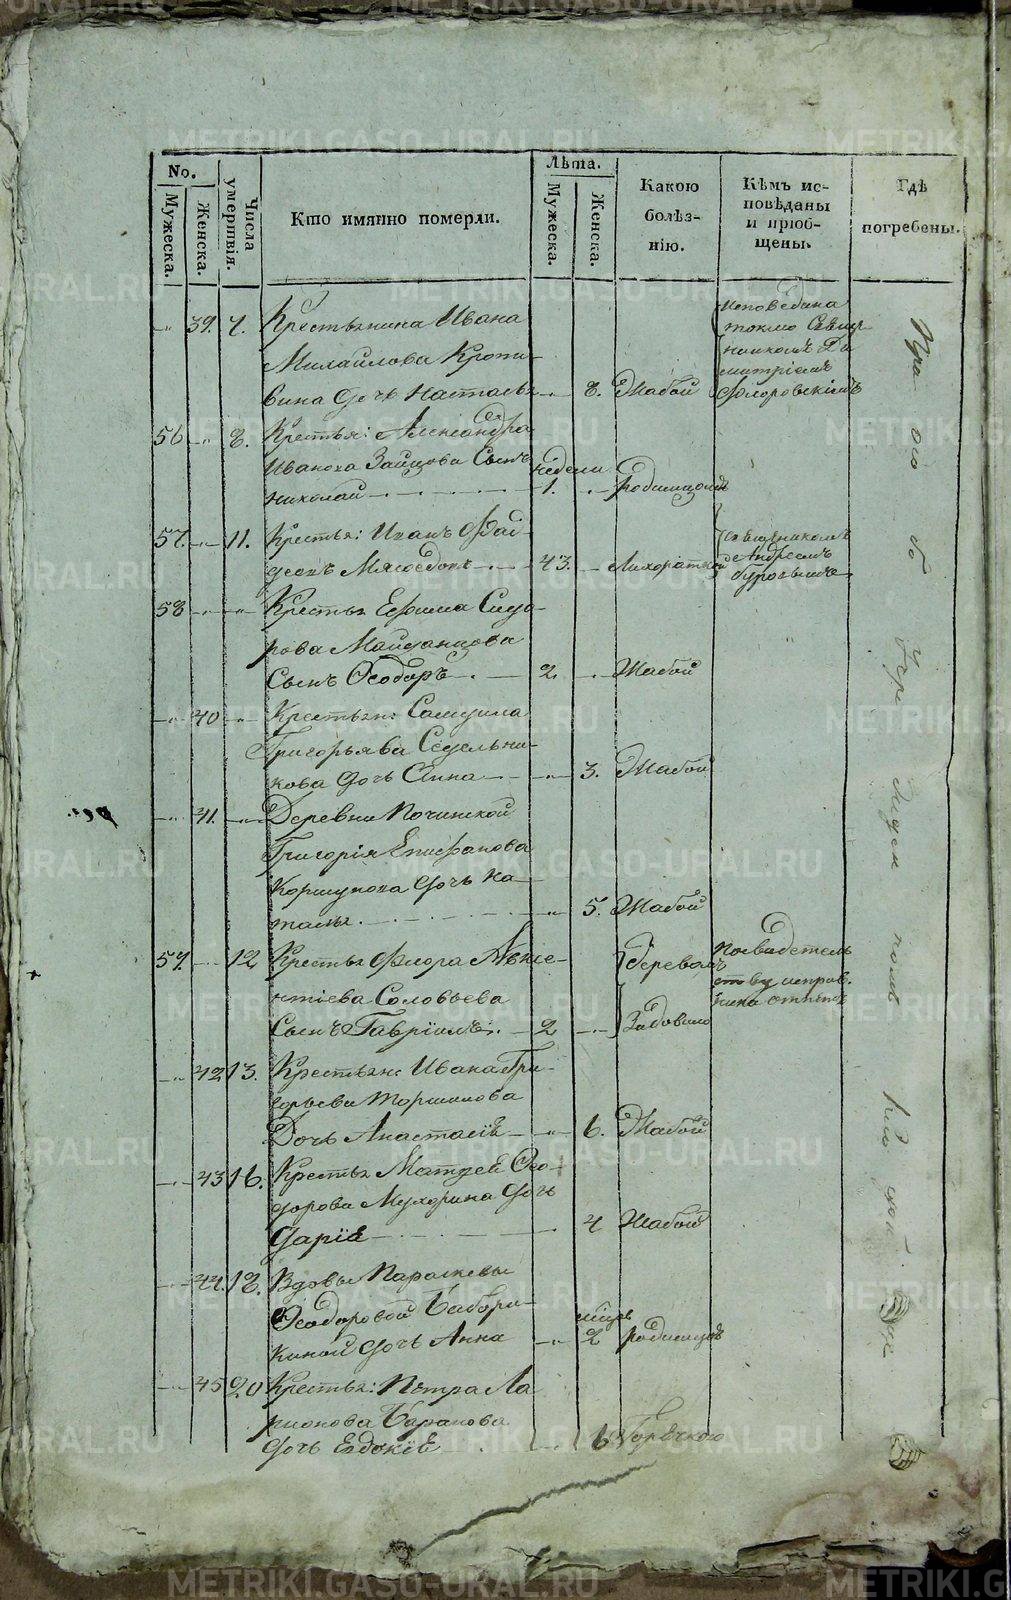 METRIKI.GASO-URAL.RU
No.
Мужеска.
Женска.
Числа умертвія.
Кто имянно померли.
Лѣта.
Мужеска.
Женска.
Какою
болѣз-
нію.
Кѣмъ ис-
повѣданы
и пріоб-
щены.
Гдѣ
погребены.
39. 7. Крестьянина Ивана
Михайлова Кропи-
вина дочь Наталья 8. Жабой
исповедана
токмо Свящ-
никомъ Ди
митріемъ
Флоровскимъ
56 8. Крестья: Александра
Иванова Зайцова Сынъ недели
николай 1. родимцомъ
57. 11. Крестья: Иванъ Фад-
деевъ Мясоедовъ 43. Лихораткой
Священникомъ
Андреемъ
58 Крестья Ефима Сидо-
рова Майданцова
Сынъ Ѳеодоръ 2. Жабой
40 Крестьян:
Григорьева Седельни-
кова дочь Анна 3. Жабой
41. Деревни Починской
Григорія Епифанова
Коршунова дочь На-
талья 5. Жабой
59. 12 Крестья Флора
Соловьева
Сынъ Гавріилъ 2
Деревомъ
Задавило
по свидетель
ству исправ.
42 13. Крестьян: Ивана Гри-
горьева Торшинова
Дочь Анастасіѣ 6. Жабой
43 16. Крестья Матфея Ѳео-
дорова Мухорина дочь
Даріѣ 4 Жабой
44. 18. Вдовы Параскевы
Ѳеодоровой Бабори-
киной дочь Анна 2 родимцомъ
45 20 Крестья: Петра Ла
ріонова Баранова
дочь Евдокіѣ 6 Горячкою